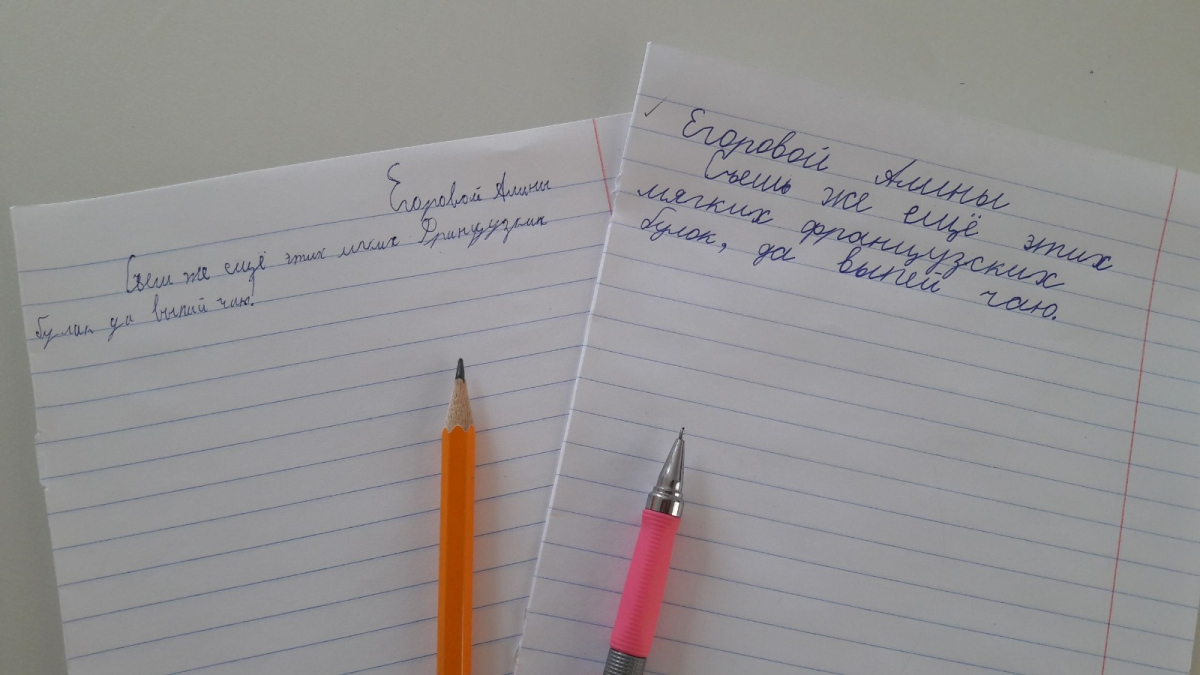 Егоровой Алины
Съеш же ещё этих мгких Французких
булак да выпий чаю.
Егоровой Алины
Съешь же ещё этих
мягких французских
булок, да выпей чаю.